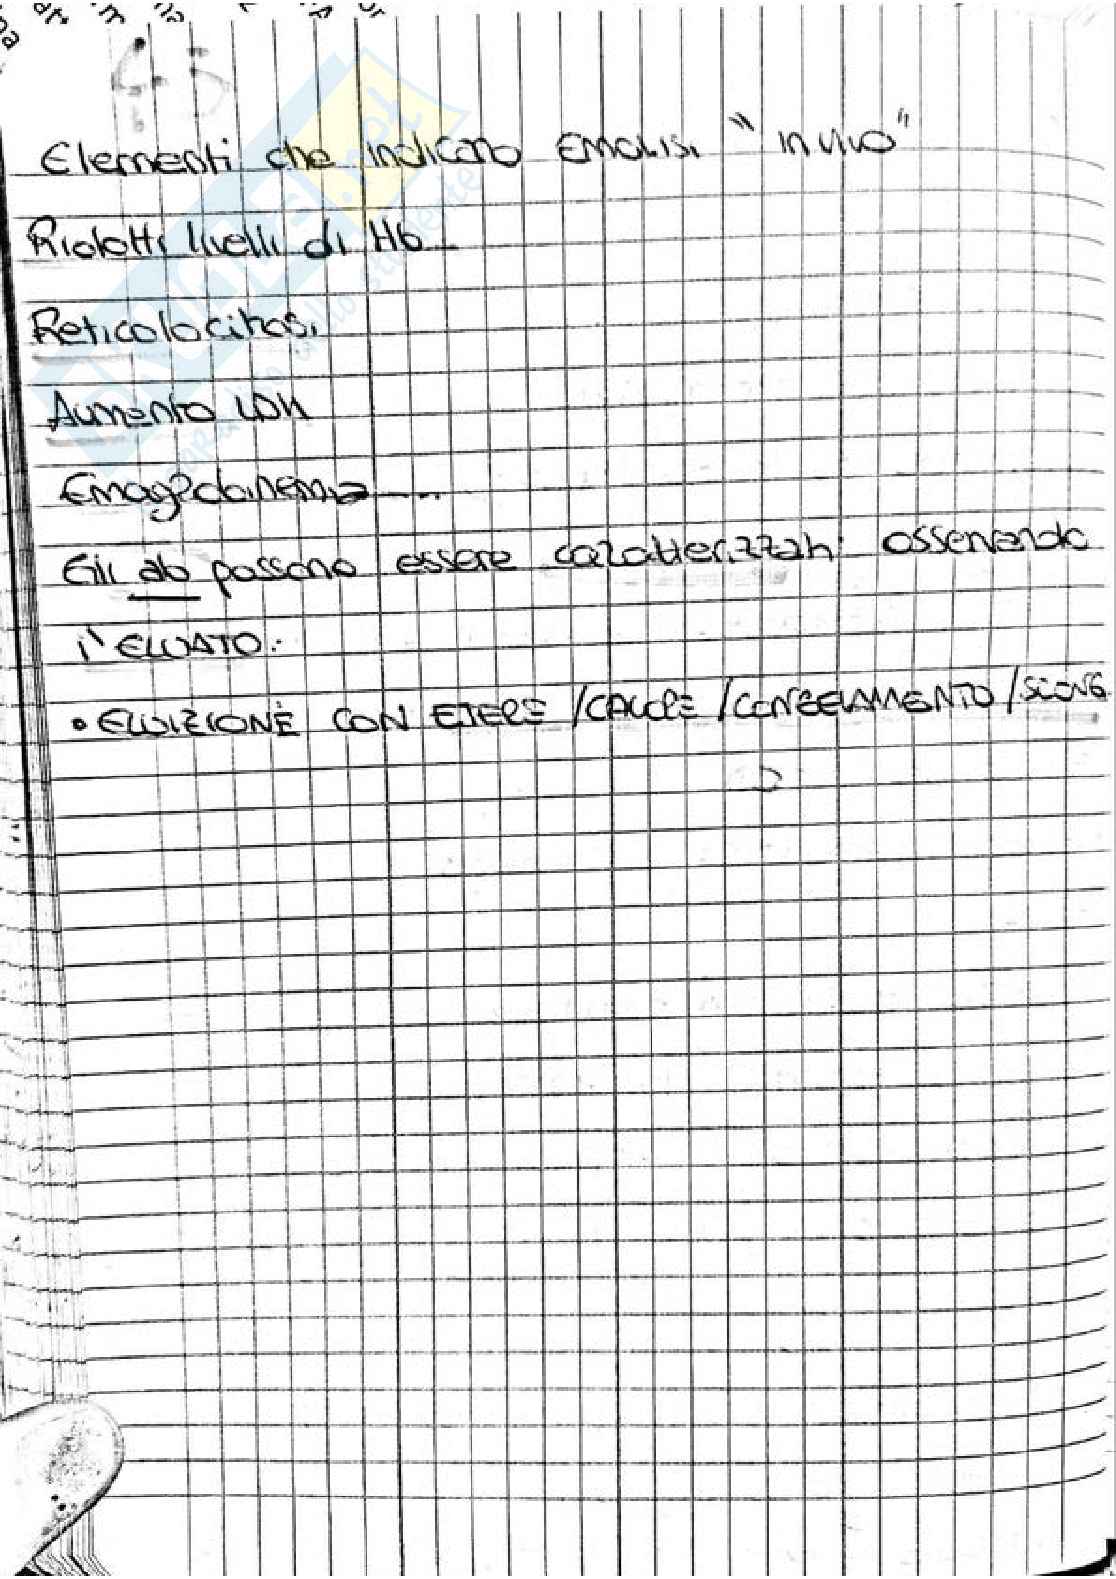 Elementi che indicano EMOLISI "IN VIVO"
Ridotti livelli di Hb
Reticolocitosi
Aumento LDH
Gli ab possono essere caratterizzati osservando
l'ELUATO:
• ELUIZIONE CON ETERE /CALORE /CONGELAMENTO/SCONG